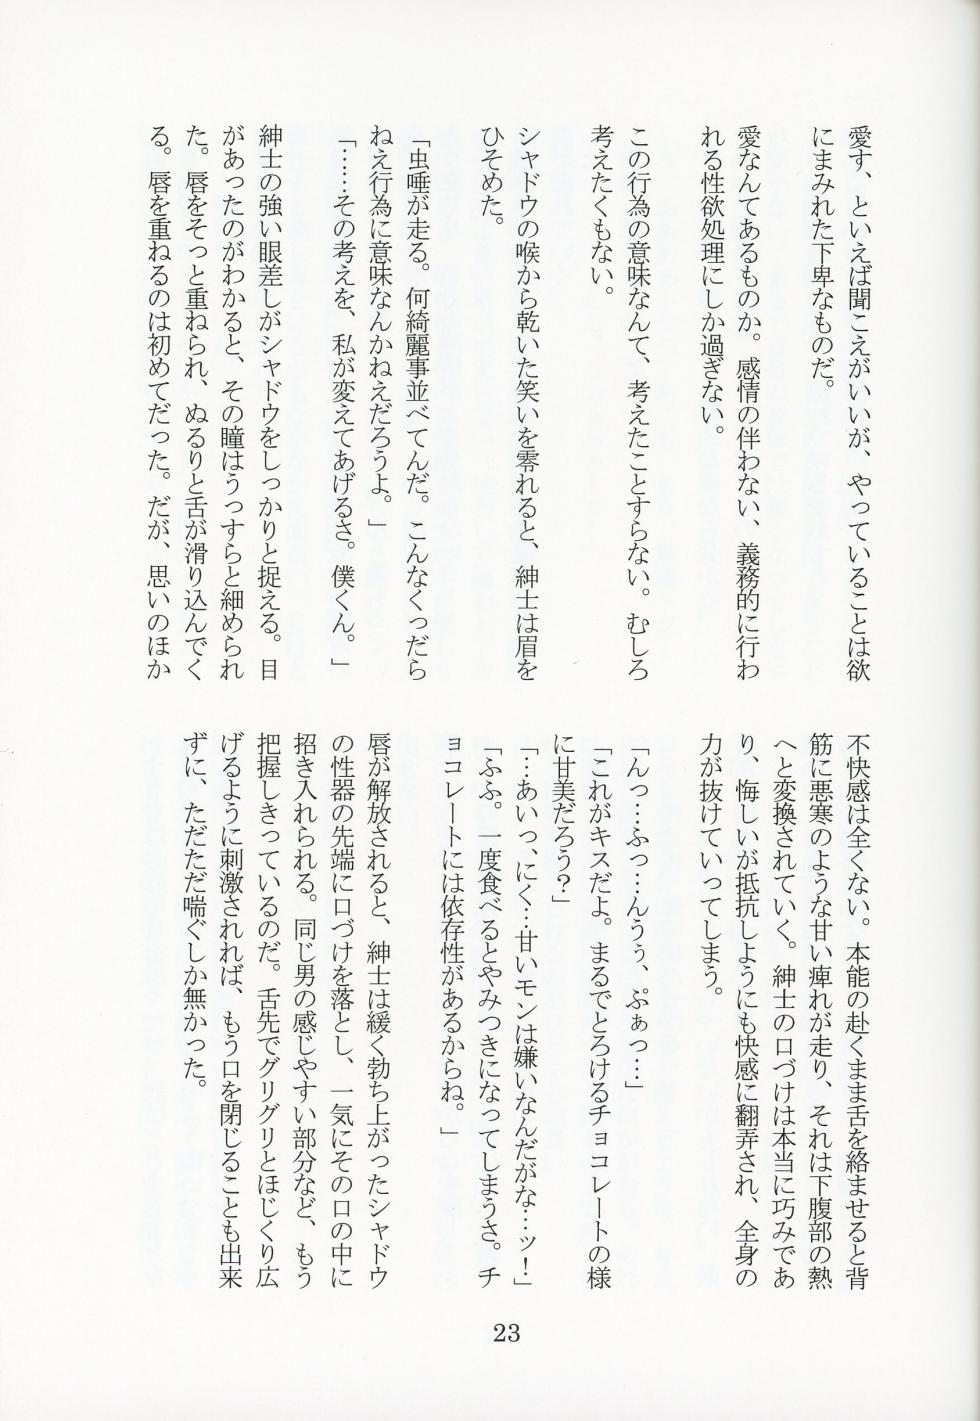 愛す、といえば聞こえがいいが、やっていることは欲
にまみれた下卑なものだ。
愛なんてあるものか。感情の伴わない、義務的に行わ
れる性欲処理にしか過ぎない。
この行為の意味なんて、考えたことすらない。むしろ
考えたくもない。
シャドウの喉から乾いた笑いを零れると、紳士は眉を
ひそめた。
「虫唾が走る。何綺麗事並べてんだ。こんなくっだら
ねえ行為に意味なんかねえだろうよ。」
「……その考えを、私が変えてあげるさ。僕くん。」
紳士の強い眼差しがシャドウをしっかりと捉える。目
があったのがわかると、その瞳はうっすらと細められ
た。唇をそっと重ねられ、ぬるりと舌が滑り込んでく
る。唇を重ねるのは初めてだった。だが、思いのほか
不快感は全くない。本能の赴くまま舌を絡ませると背
筋に悪寒のような甘い痺れが走り、それは下腹部の熱
へと変換されていく。紳士の口づけは本当に巧みであ
り、悔しいが抵抗しようにも快感に翻弄され、全身の
力が抜けていってしまう。
「んっ…ふっ…んうぅ、ぷぁっ…」
「これがキスだよ。まるでとろけるチョコレートの様
に甘美だろう？」
「…あいっ、にく…甘いモンは嫌いなんだがな…ッ！」
「ふふ。一度食べるとやみつきになってしまうさ。チ
ョコレートには依存性があるからね。」
唇が解放されると、紳士は緩く勃ち上がったシャドウ
の性器の先端に口づけを落とし、一気にその口の中に
招き入れられる。同じ男の感じやすい部分など、もう
把握しきっているのだ。舌先でグリグリとほじくり広
げるように刺激されれば、もう口を閉じることも出来
ずに、ただただ喘ぐしか無かった。
23